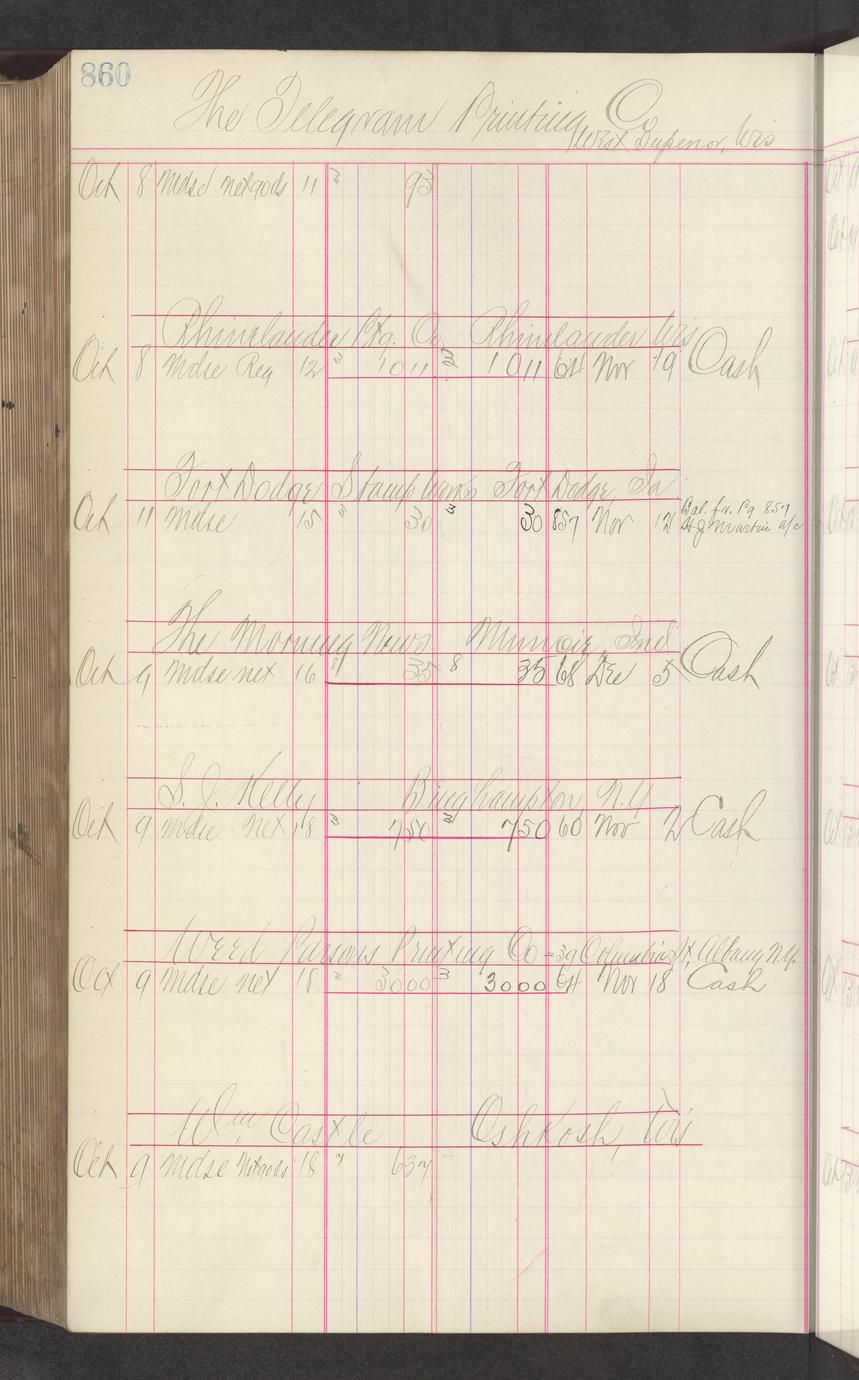 860
The Telegram Printing Co
West Superior, Wis
Oct 8 Mdse net gods 11 " 93
Rhinelander Ptg. Co. Rhinelander Wis
Oct 8 Mdse Reg 12 " 1011 1011 64 Nov 19 Cash
Fort Dodge Stamp Works Fort Dodge, Ia
Oct 11 Mdse 15 " 30 3 30 857 Nov 12 Bal. fr. Pg 857
Martin a/c
The Morning News Muncie, Ind
Oct 9 Mdse net 16 35 8 35 68 Dec 5 Cash
S. J. Kelly Binghampton, N.Y
Oct 9 Mdse Net 18 " 750 " 750 60 Nov 2 Cash
Weed Parsons Printing Co - 39 Columbia St, Albany N.Y.
Oct 9 Mdse net 18 " 3000 3 3000 64 Nov 18 Cash
Wm Castle Oshkosh, Wis
Oct 9 Mdse Net gods 18 " 637